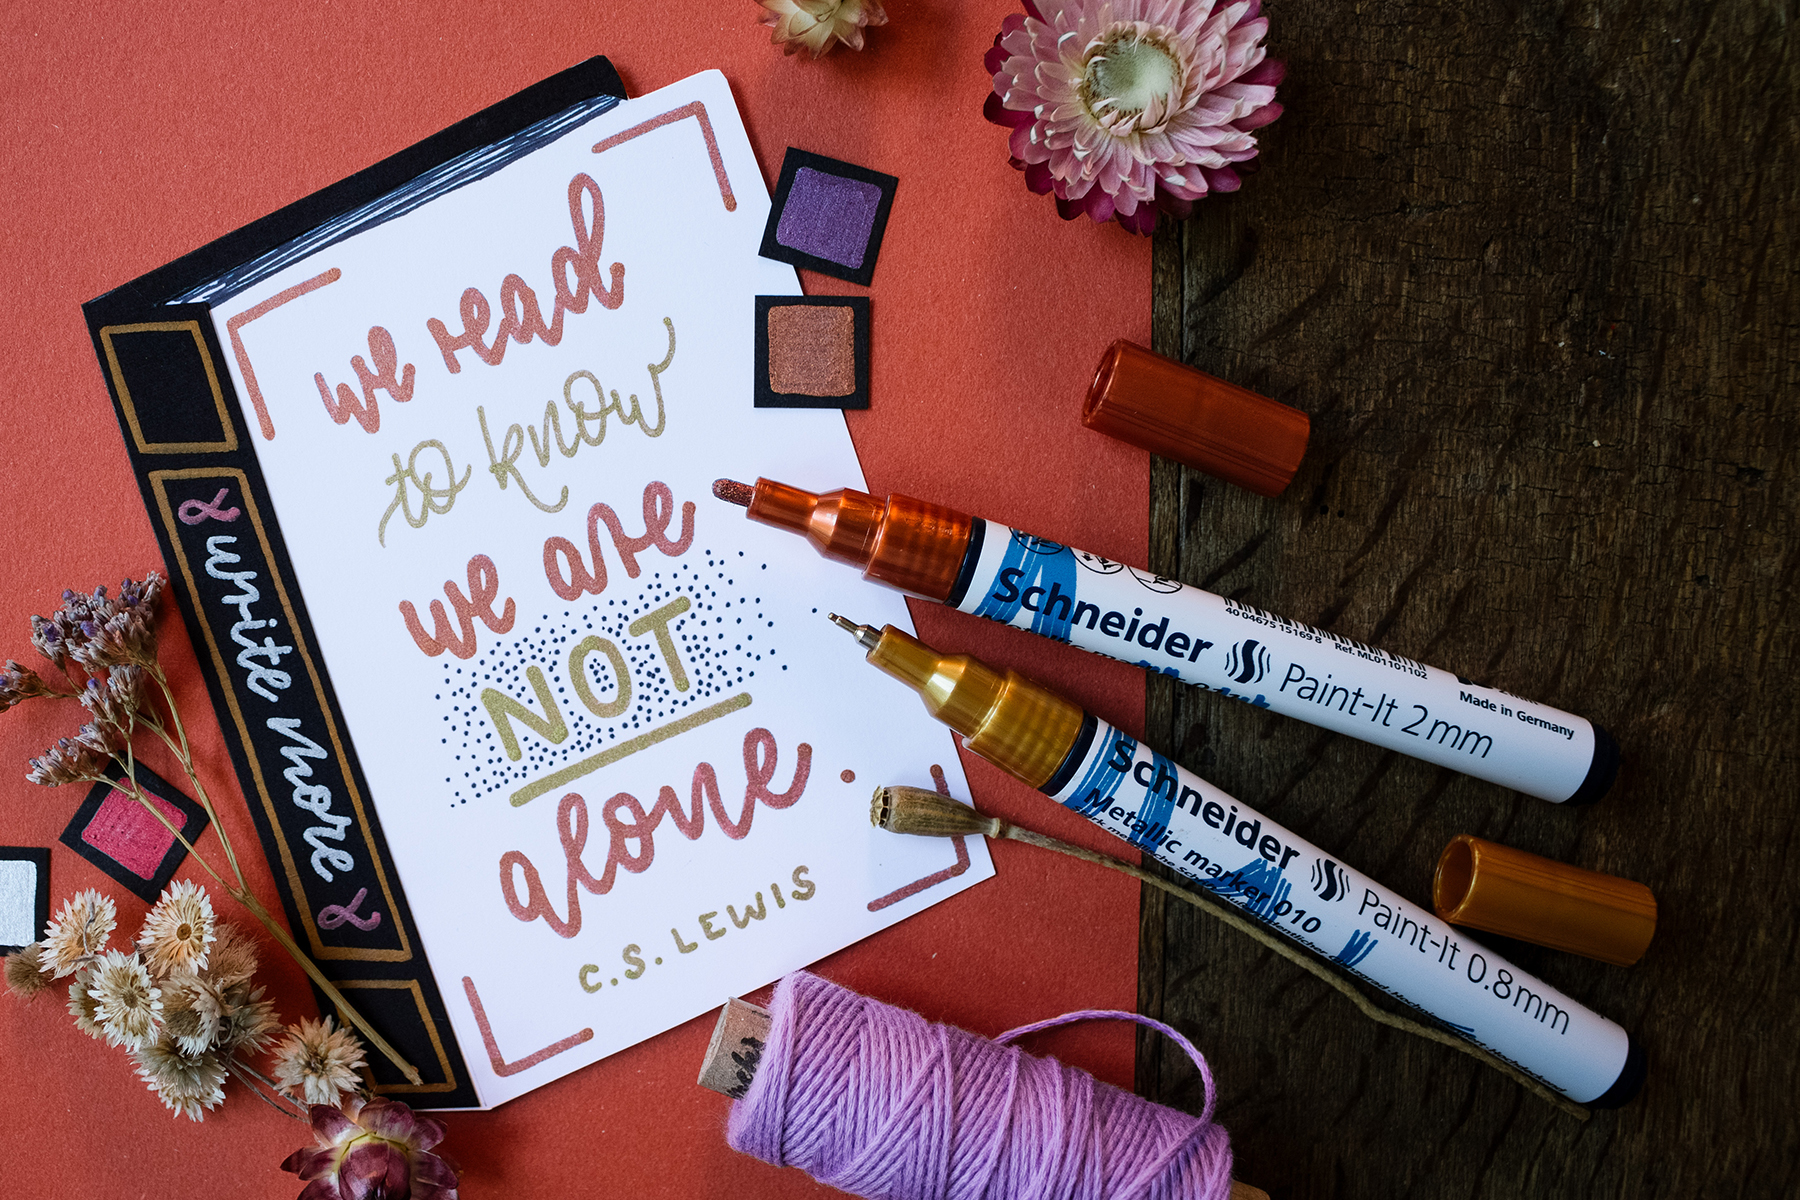 we read
to know
we are
NOT
alone.
C.S. LEWIS
& write more &
Schneider Paint-It 2mm
40 04675 15169 8
Ref. ML01101102
Made in Germany
Schneider Paint-It 0.8mm
Metallic marker 010